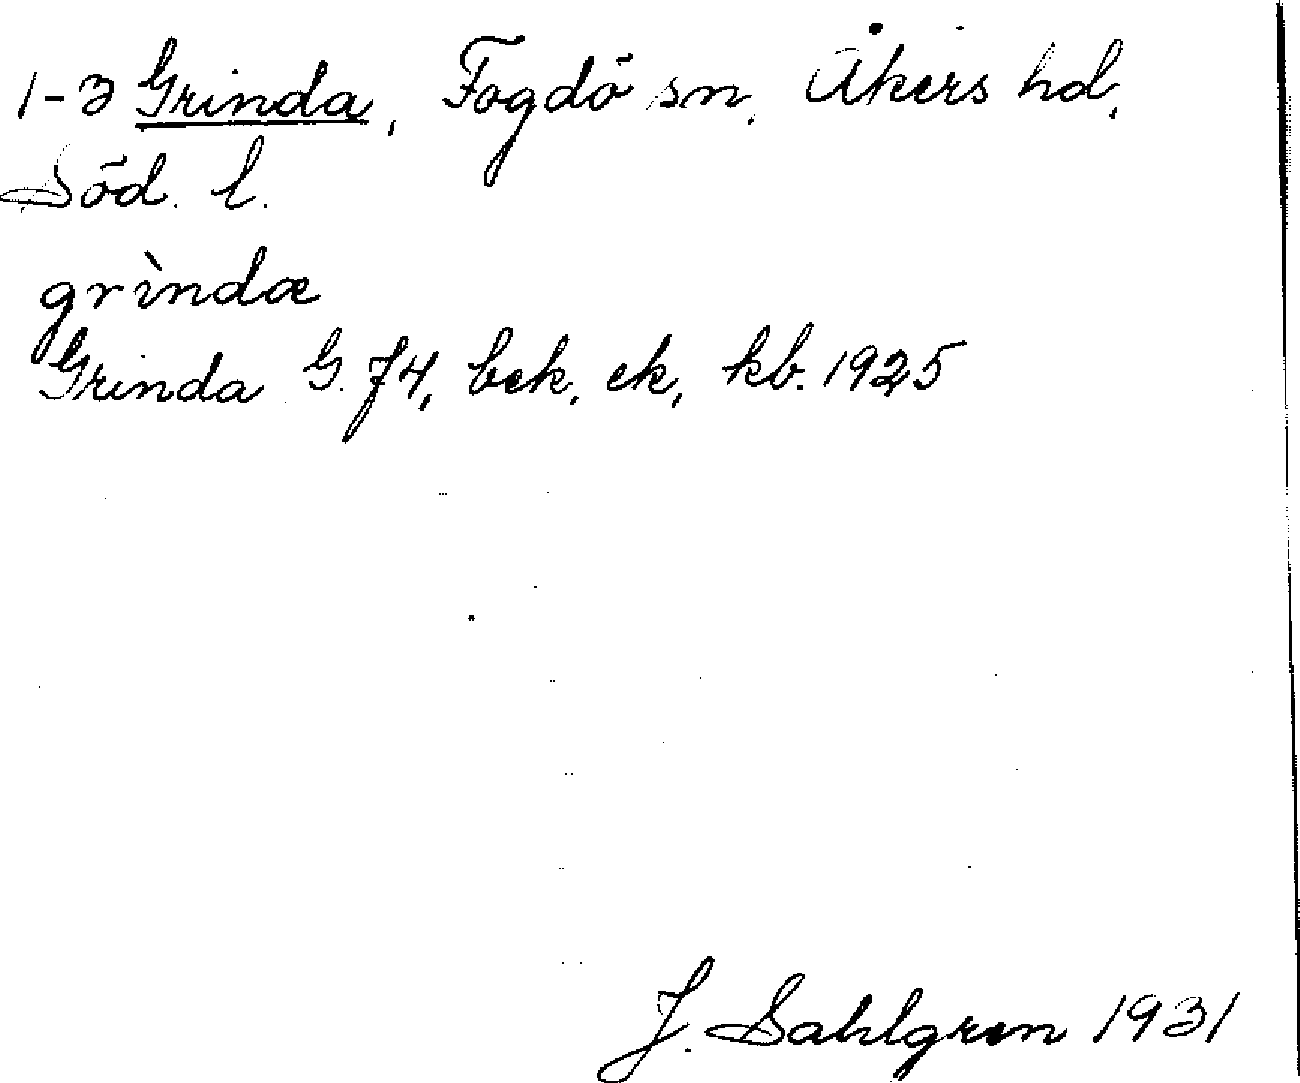 1-3 Grinda, Fogdö sn, Åkers hd,
Söd. l.
grìndæ
Grinda G. J4, bek, ek, kb. 1925
J. Sahlgren 1931